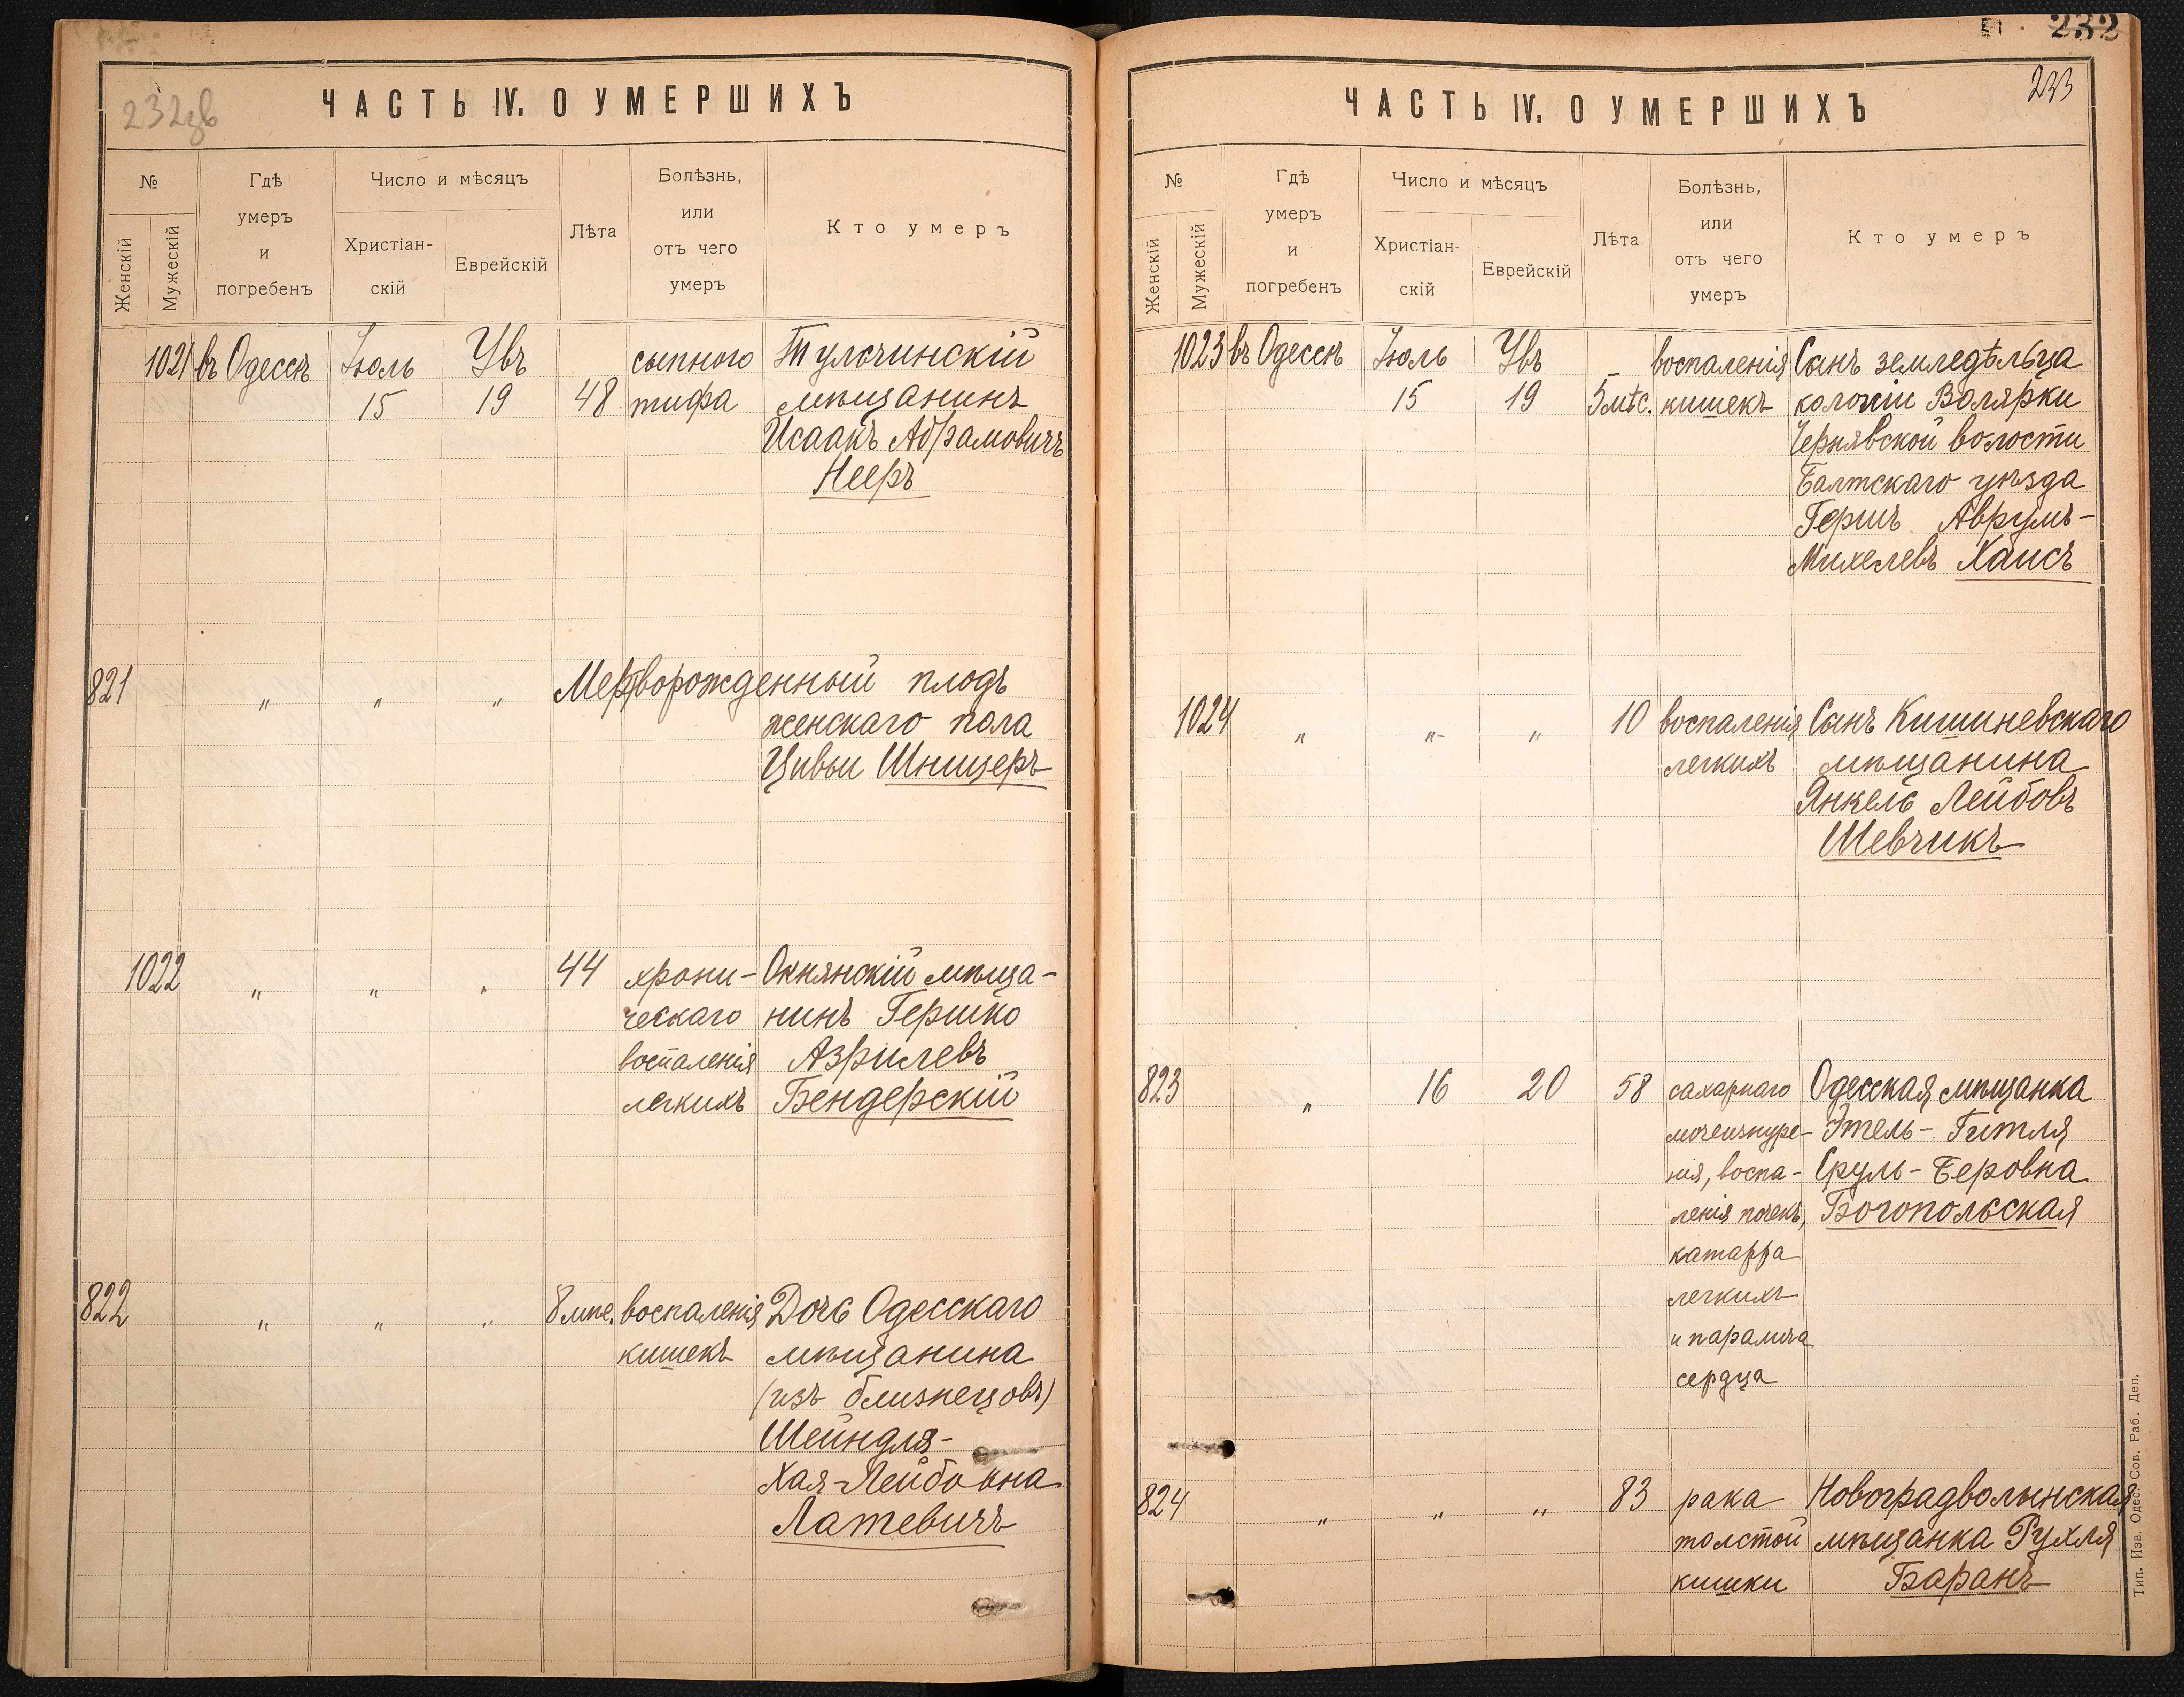 232
232зв
ЧАСТЬ IV. О УМЕРШИХЪ
№
Женскій
Мужескій
Гдѣ
умеръ
и
погребенъ
Число и мѣсяцъ
Христіан-
скій
Еврейскій
Лѣта
Болѣзнь,
или
отъ чего
умеръ
Кто умеръ
1021 въ Одессѣ Іюль Увъ сыпного Тульчинскій
15 19 48 тифа мѣщанинъ
Исаакъ Абрамовичъ
Нееръ
821 " " " Мертворожденный плодъ
женскаго пола
Цивьи Шницеръ
1022 " " " 44 хрони- Окнянскій мѣща-
ческаго нинъ Гершко
воспаленія Азрилевъ
легкихъ Бендерскій
822 " " " 8 мѣс. воспаленія Дочь Одесскаго
кишекъ мѣщанина
(изъ близнецовъ)
Шейндля-
Хая-Лейбовна
Латевичъ
233
ЧАСТЬ IV. О УМЕРШИХЪ
№
Женскій
Мужескій
Гдѣ
умеръ
и
погребенъ
Число и мѣсяцъ
Христіан-
скій
Еврейскій
Лѣта
Болѣзнь,
или
отъ чего
умеръ
Кто умеръ
1023 въ Одессѣ Іюль Увъ воспаленія Сынъ земледѣльца
15 19 5 мѣс. кишекъ колоніи Волярки
Чернявской волости
Балтскаго уѣзда
Гершъ Аврумъ-
Михелевъ Хаисъ
1024 " " " 10 воспаленія Сынъ Кишиневскаго
легкихъ мѣщанина
Янкель Лейбовъ
Шевчикъ
823 " 16 20 58 сахарнаго Одесская мѣщанка
мочеизнуре- Этель-Гитля
нія, воспа- Сруль-Беровна
ленія почекъ, Богопольская
катарра
легкихъ
и паралича
сердца
824 " " " 83 рака Новоградволынская
толстой мѣщанка Рухля
кишки Баранъ
Тип. Изв. Одес. Сов. Раб. Деп.